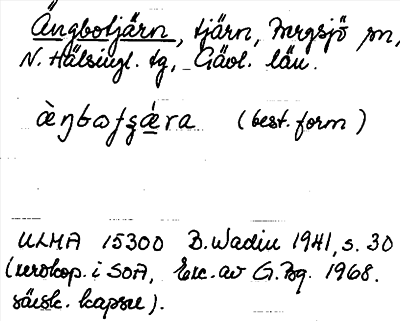 Ängbotjärn, tjärn, Mrgsjö sn,
N. Hälsingl. tg, Gävl. län.
ὰŋboʈʂǽra (best. form)
ULMA 15300 B. Wadin 1941, s. 30
(xerokop. i SOA, Exc. av G. Bg. 1968.
särsk. kapsel).